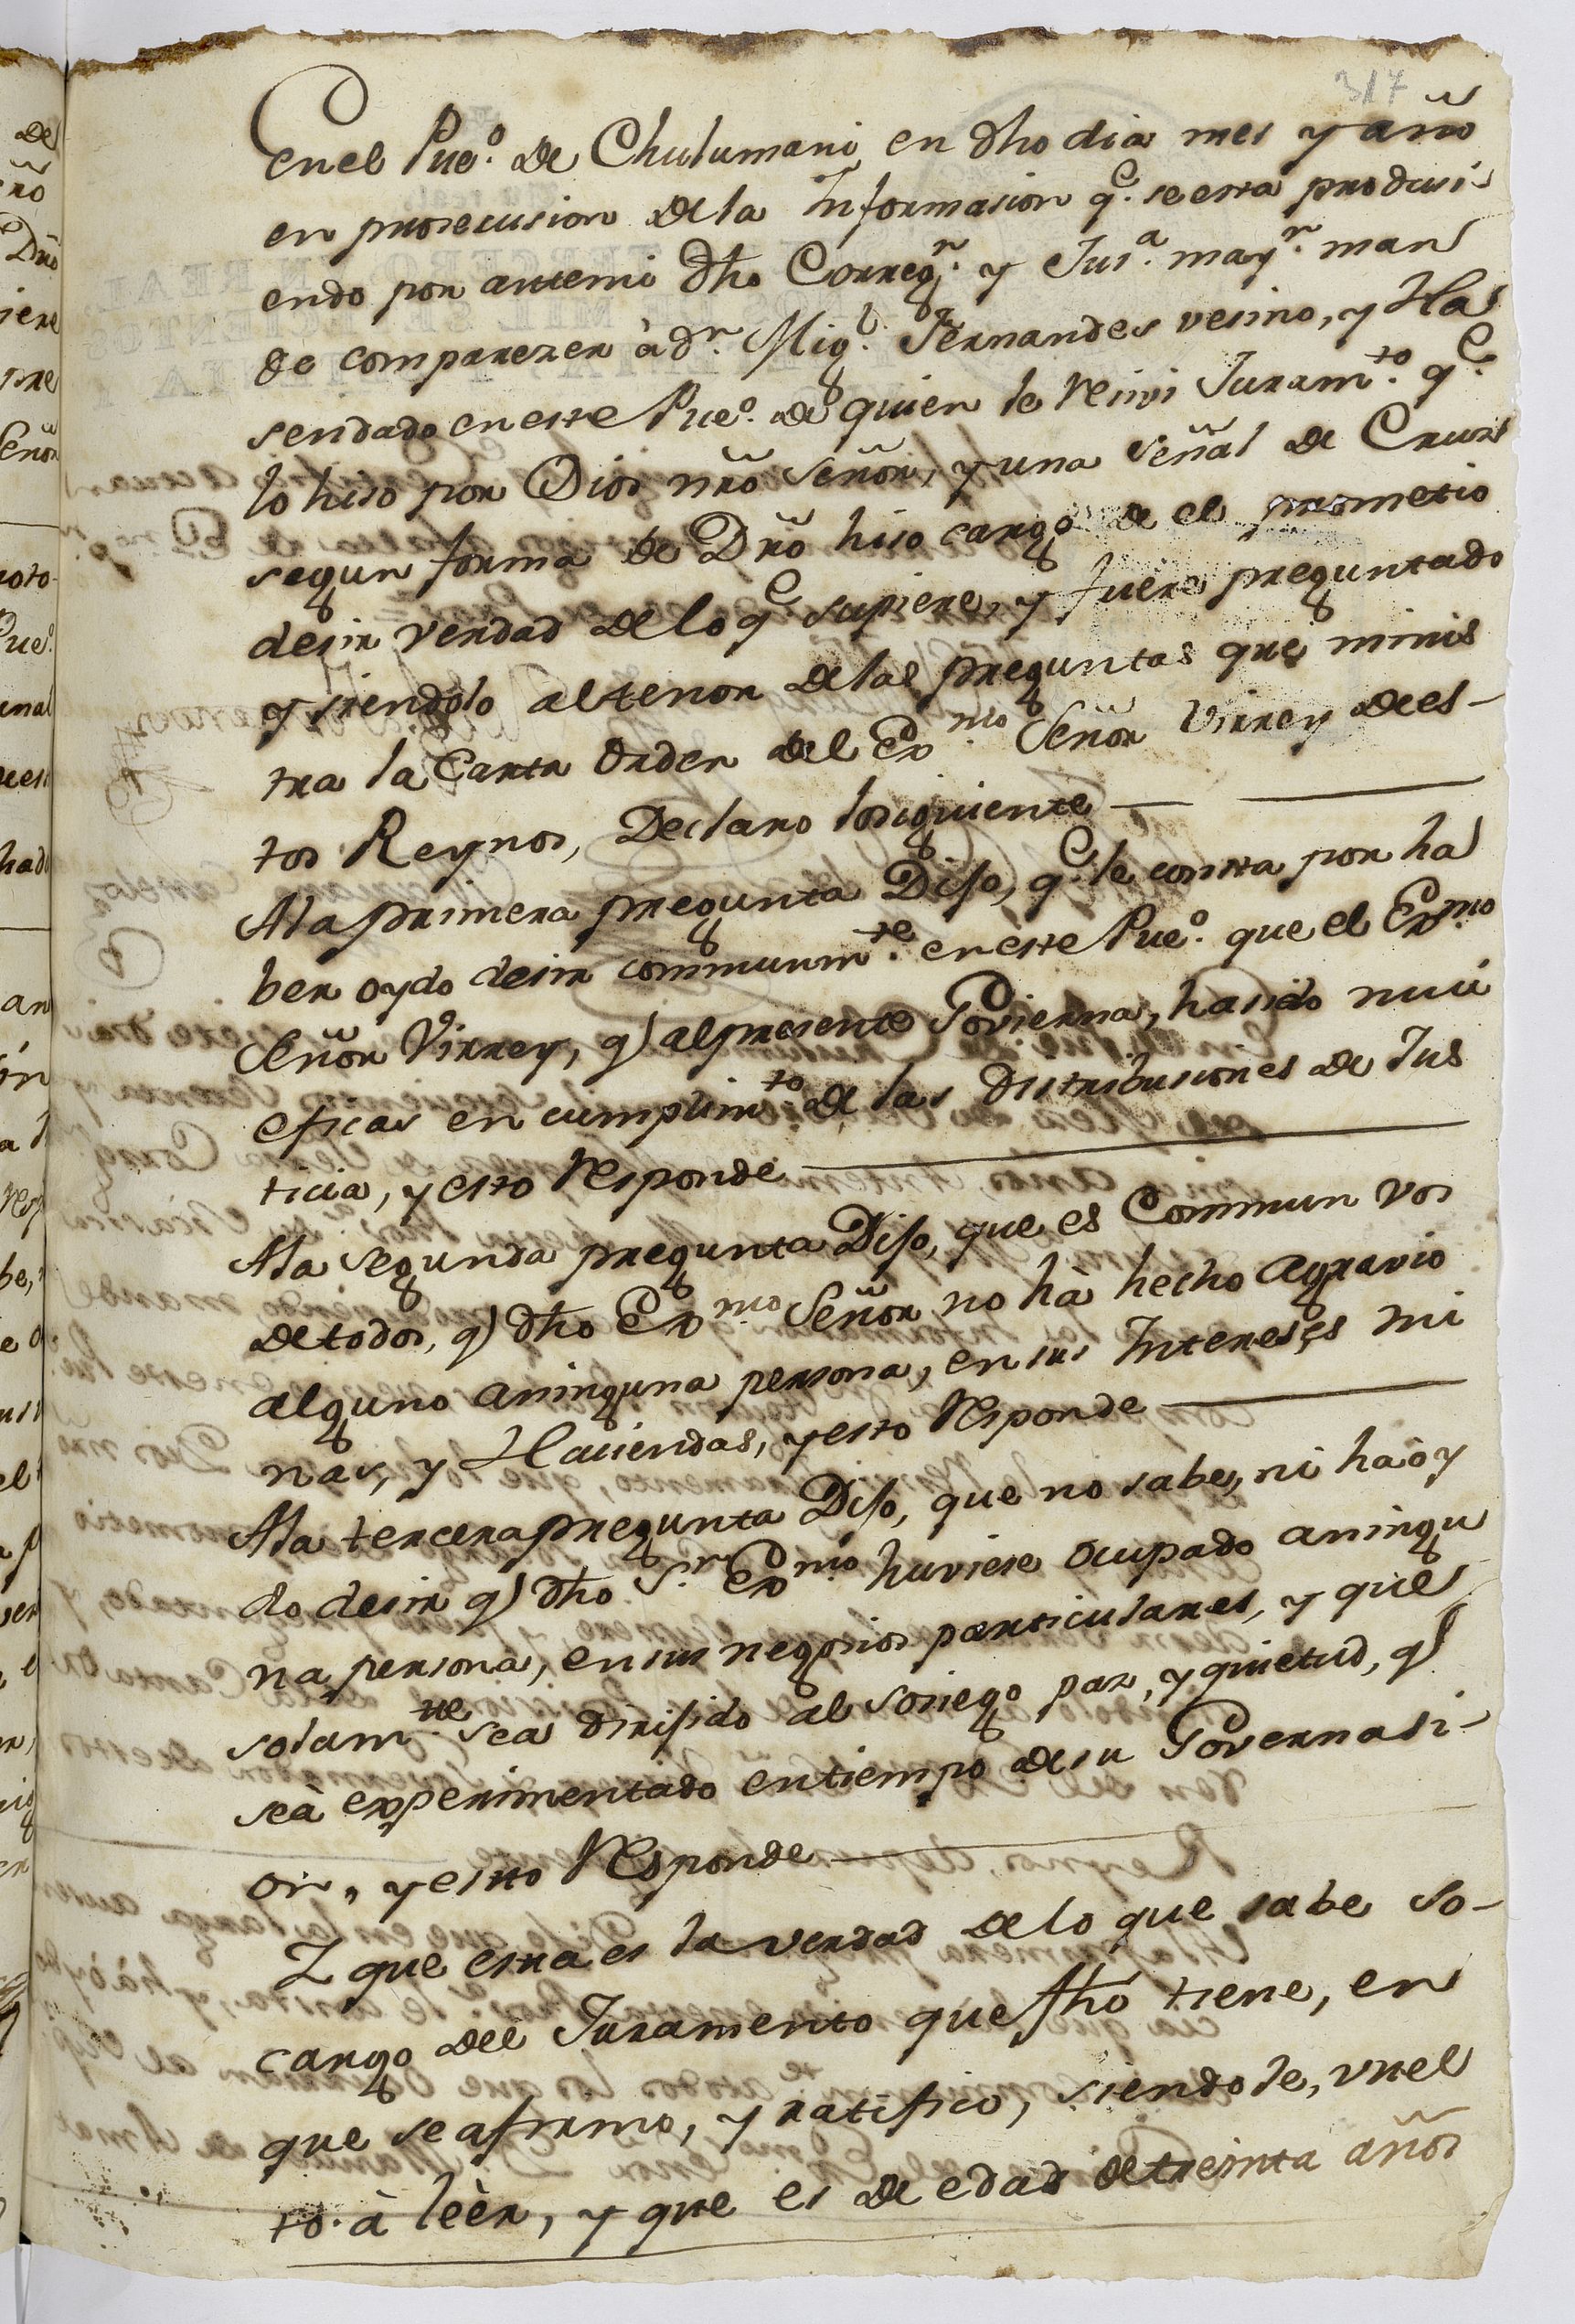 317
En el Pueº. de Chulumani en dho dia mes y año
en prosecusion de la Informasion q.e se esta produsi-
endo por antemi dho Correg.r y Jus.a may.r man
do comparezer à d.n Mig.l Fernandes vesino, y Ha
sendado en este Pueº. de quien le resivi Juram.to q.e
lo hiso por Dios nrõ Señor, y una señal de Crus
segun forma de Drõ hiso cargo de el prometio
desir verdad de lo q.e supiere, y fuere preguntado
y siendolo al tenor de las preguntas que minis
tra la Carta orden del Ex.mo Señor Virrey de es-
tos Reynos, Declaro lo siguiente
A la primera pregunta Dijo, q.e le consta por ha
ber oydo desir communm.te en este Pueº. que el Ex.mo
Señor Virrey, q) al presente Govierna, ha sido mui
eficas en cumplim.to de las distribusiones de Jus
ticia, y esto Responde
A la segunda pregunta Dijo, que es Commun vos
de todos, q) dho Ex.mo Señor no hà hecho agravio
alguno a ninguna persona, en sus Intereses mi
nas, y Haciendas, y esto Responde
A la tercera pregunta Dijo, que no sabe, ni ha òy
do desir q) dho S.r Ex.mo huviese ocupado a ningu
na persona, en sus negosios particulares, y que
solam.te sea dirijido al sosiego paz, y quietud, q)
seà experimentado en tiempo de su Governasi-
on, y esto Responde
Y que esta es la verdad de lo que sabe so-
cargo del Juramento que fho tiene, en
que se afirmo, y ratifico, siendole, vuel
to à leèr, y que es de edad de treinta años